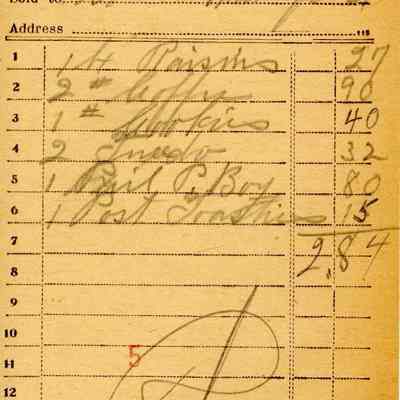 Sold to
Address
1 1 # Raisins 27
2 2 # Coffee 90
3 1 # Cookies 40
4 2 32
5 1 P. Boy 80
6 1 Post Toasties 15
7 2.84
8
9
10
11 5
12